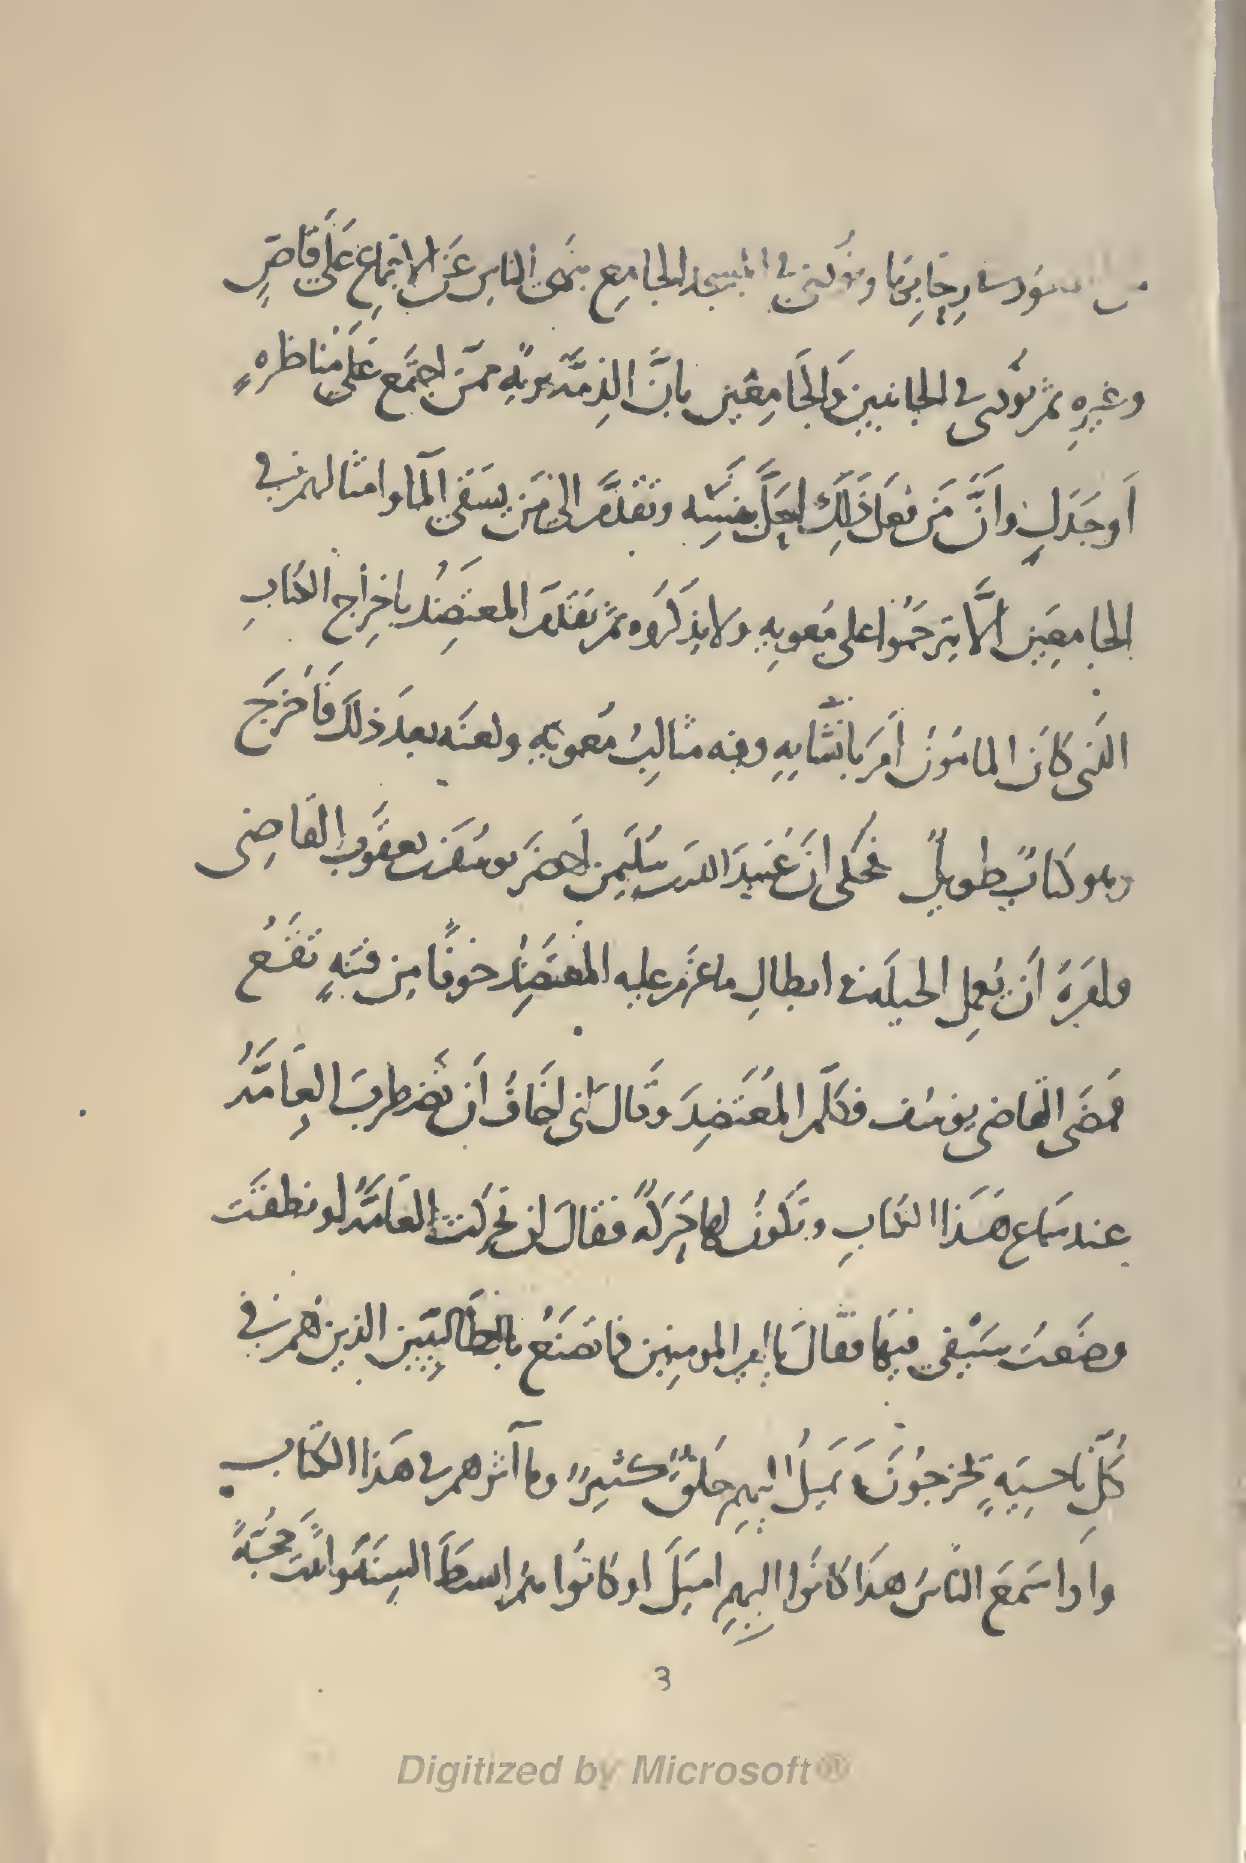 ورحابها ونودي في المسجد الجامع بنهي الناس عن الاجتماع على قاصٍّ
وغيره ثم نودي في الجانبين والجامعين بان الذمة برية ممن اجتمع على مناظره
او جدل وان من فعل ذلك احل بنفسه وتقدم الى من يسقي الما وامثالهم في
الجامعين الا يترحموا على معويه ولا يذكروه ثم تقدم المعتضد باخراج الكتاب
الذي كان المامون امر بانشايه وفيه مثالب معويه ولعنه بعد ذلك فاخرج
وهو كتاب طويل فحكي ان عبيد الله بن سليمن احضر يوسف بن يعقوب القاضي
وامره ان يعمل الحيلة في ابطال ما عزم عليه المعتضد خوفا من فتنه تقع
فمضى القاضي يوسف فكلم المعتضد وقال اني اخاف ان تضطرب العامة
عند سماع هذا الكتاب وتكون لها حركة فقال ان تحركت العامة او نطقت
وضعت سيفي فيها فقال يا امير المومنين فما تصنع بالطالبيين الذين هم في
كل ناحية يخرجون يميل اليهم خلق كثير وما آثرهم في هذا الكتاب
واذا سمع الناس هذا كانوا اليهم اميل او كانوا هم ابسط السنة واثبت حجة
3
Digitized by Microsoft®